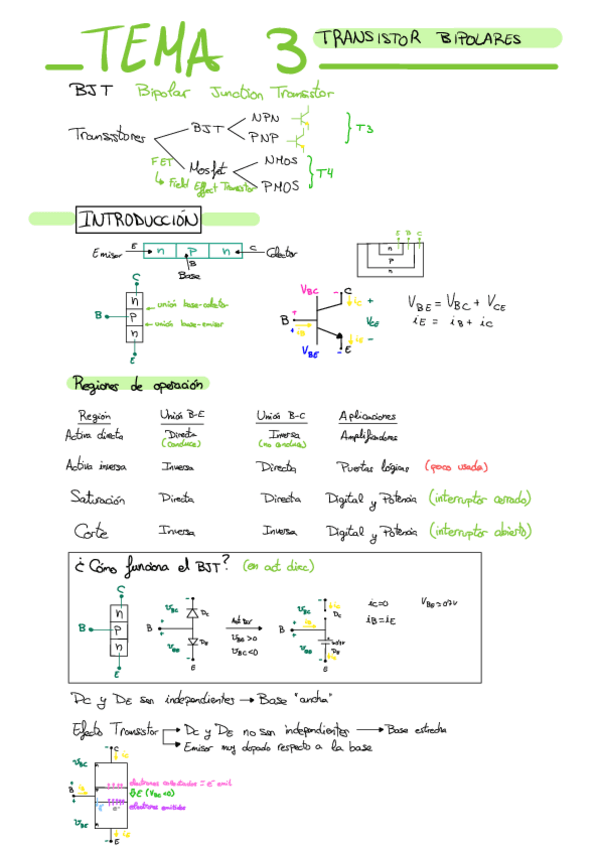 TEMA 3 TRANSISTOR BIPOLARES
BJT Bipolar Junction Transistor
Transistores
BJT
NPN
PNP
T3
FET
Mosfet
NMOS
PMOS
T4
↳ Field Effect Transistor
INTRODUCCIÓN
Emisor E n P n C Colector
B
Base
E B C
n
P
n
C
n
B P
n
E
unión base-colector
unión base-emisor
VBC - C
iC +
B + iB VCE
+ iE -
VBE - E
VBE = VBC + VCE
iE = iB + iC
Regiones de operación
Región Unión B-E Unión B-C Aplicaciones
Activa directa Directa Inversa Amplificadores
(conduce) (no conduce)
Activa inversa Inversa Directa Puertas lógicas (poco usada)
Saturación Directa Directa Digital y Potencia (interruptor cerrado)
Corte Inversa Inversa Digital y Potencia (interruptor abierto)
¿Cómo funciona el BJT? (en act direc)
C
n
B P
n
E
VBC DC
B
VBE DE
E
Act Dir
VBE>0
VBC<0
VBC DC
B
VBE DE
E
iC=0
iB=iE
VBE=0,7V
DC y DE son independientes → Base "ancha"
Efecto Transistor → DC y DE no son independientes → Base estrecha
→ Emisor muy dopado respecto a la base
C
VBC iC
B iB
VBE
iE
E
electrones colectados = e⁻ emit
E (VBC<0)
electrones emitidos